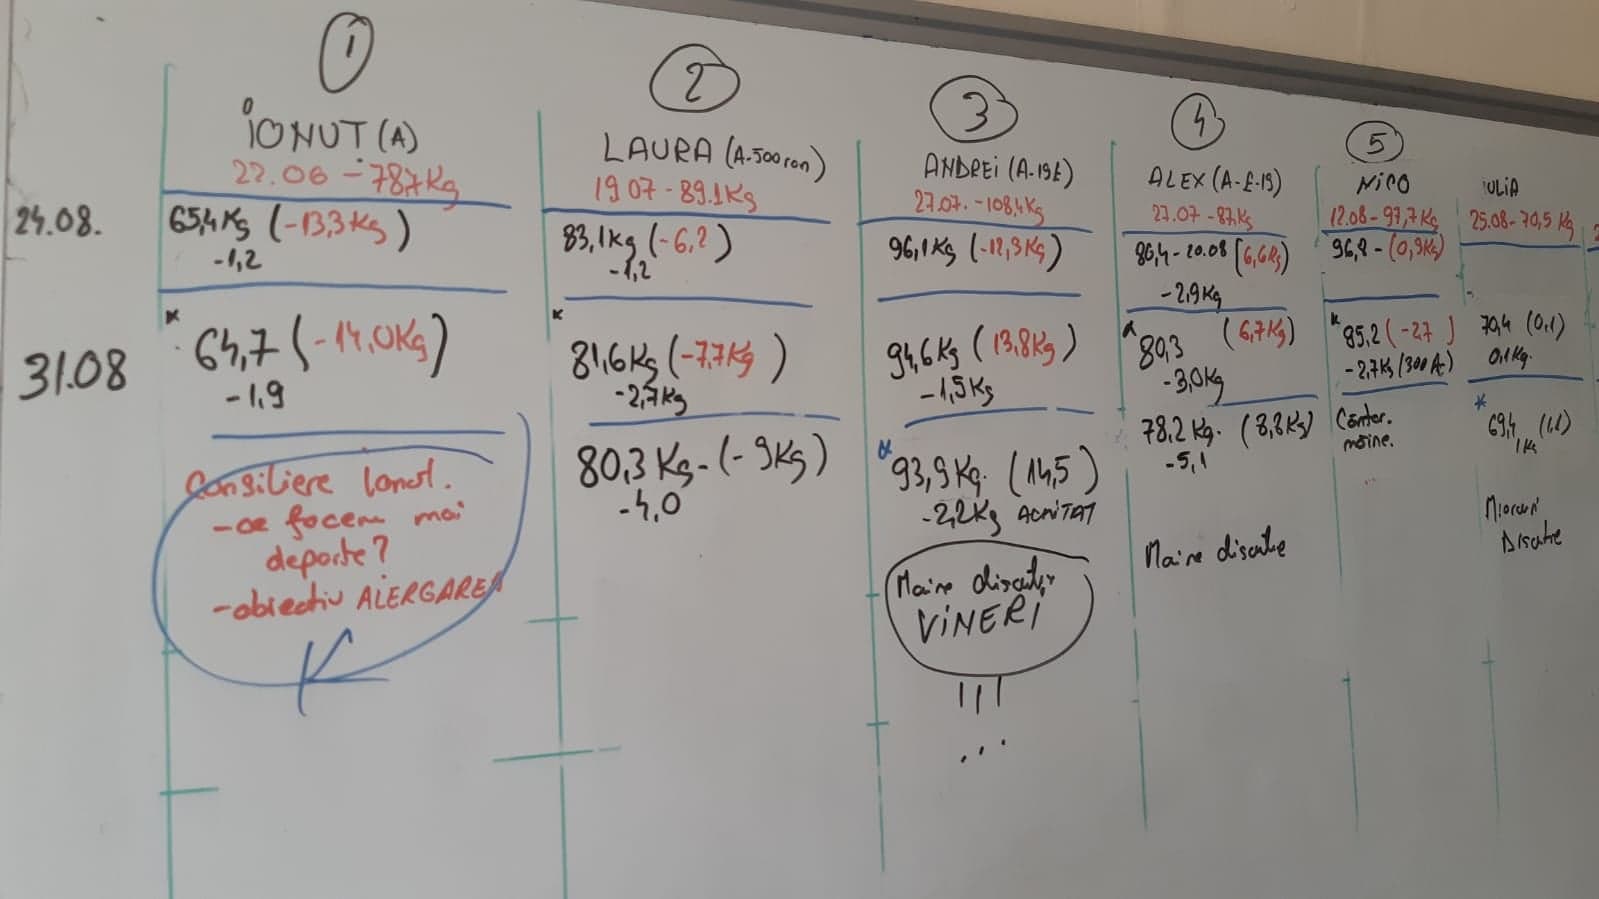 1
IONUT (A)
22.06 - 78,7Kg
24.08.
65,4Kg (-13,3Kg)
-1,2
31.08
64,7 (-14,0Kg)
-1,9
Consiliere Ionut.
-ce facem mai
departe?
-obiectiv ALERGAREA
2
LAURA (A-500ron)
19 07 - 89.1Kg
83,1kg (-6,2)
-1,2
81,6Kg (-7,7Kg)
-2,7Kg
80,3 Kg - (-9Kg)
-4,0
3
ANDREI (A-19E)
27.07. -108,4Kg
96,1Kg (-12,3Kg)
94,6Kg (13,8Kg)
-1,5Kg
93,9Kg. (14,5)
-2,2Kg ACHITAT
Maine
VINERI
4
ALEX (A-E-19)
27.07 -87Kg
80,4 - 20.08 (6,6Kg)
-2,9Kg
80,3 (6,7Kg)
-3,0Kg
78,2 Kg. (8,8Kg)
-5,1
Maine discutie
5
NICO
12.08-97,7Kg
96,8 - (0,9Kg)
95,2 (-2,7)
-2,7Kg
maine.
IULIA
25.08-70,5 Kg
70,4 (0,1)
0,1Kg.
69,4 (1,1)
1Kg
Miercuri
Discutie